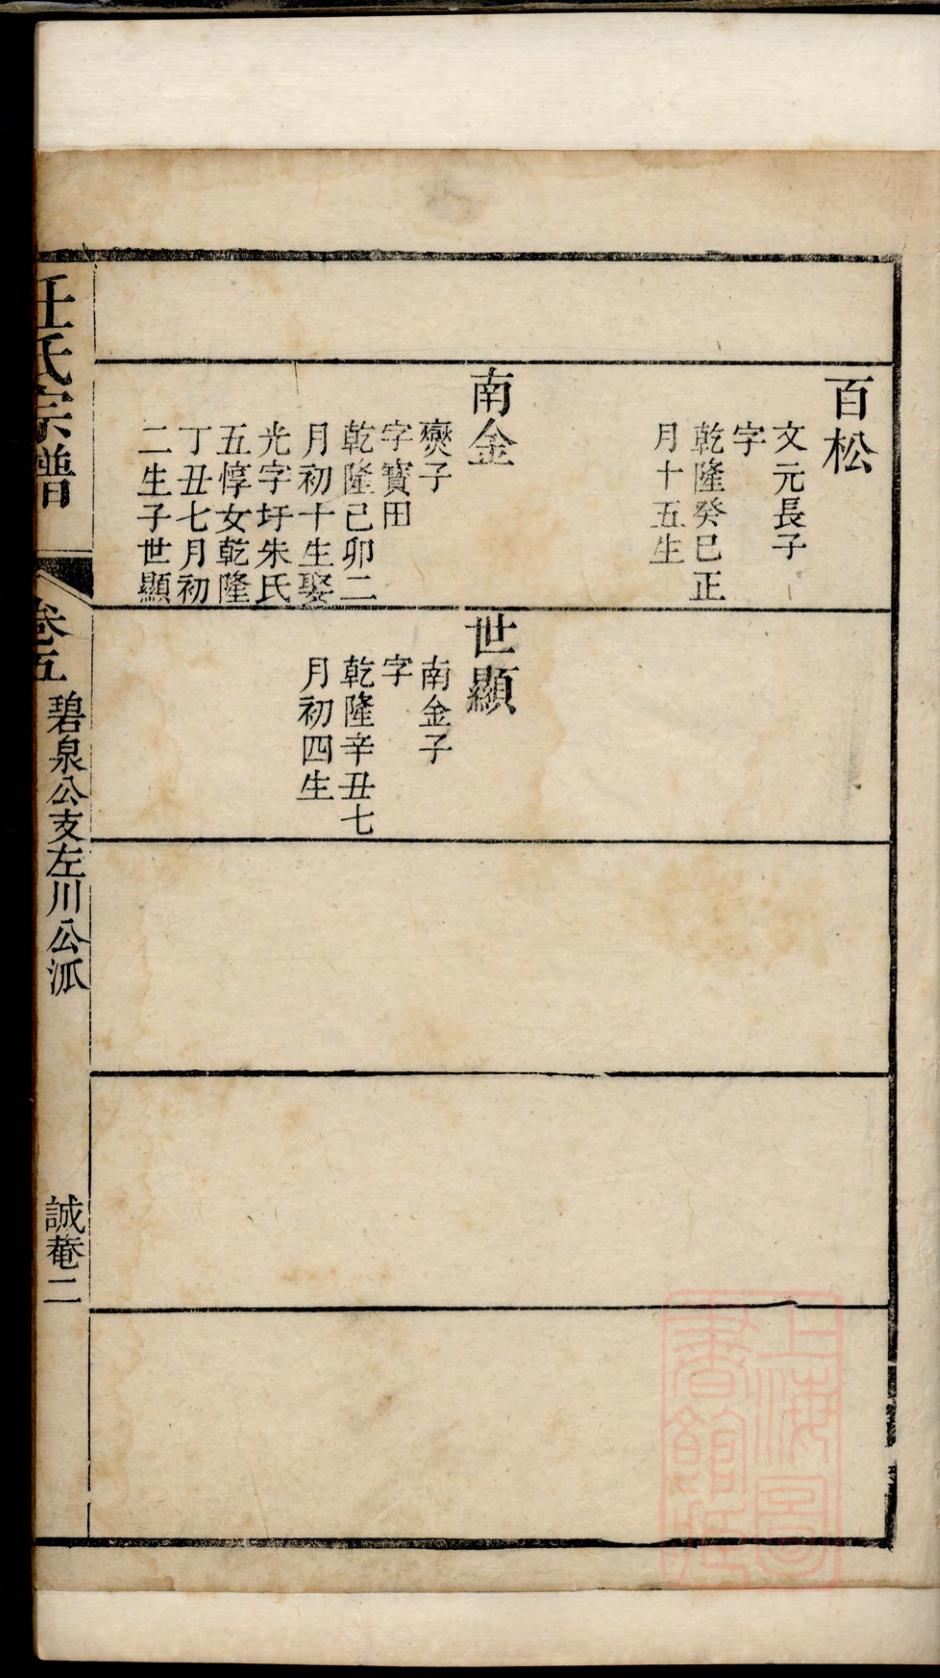 百松
文元長子
字
乾隆癸巳正
月十五生
南金
爕子
字寳田
乾隆己卯二
月初十生娶
光字圩朱氏
五惇女乾隆
丁丑七月初
二生子世顯
世顯
南金子
字
乾隆辛丑七
月初四生
任氏宗譜
卷五
碧泉公支左川公派
誠菴二
上海圖書館藏